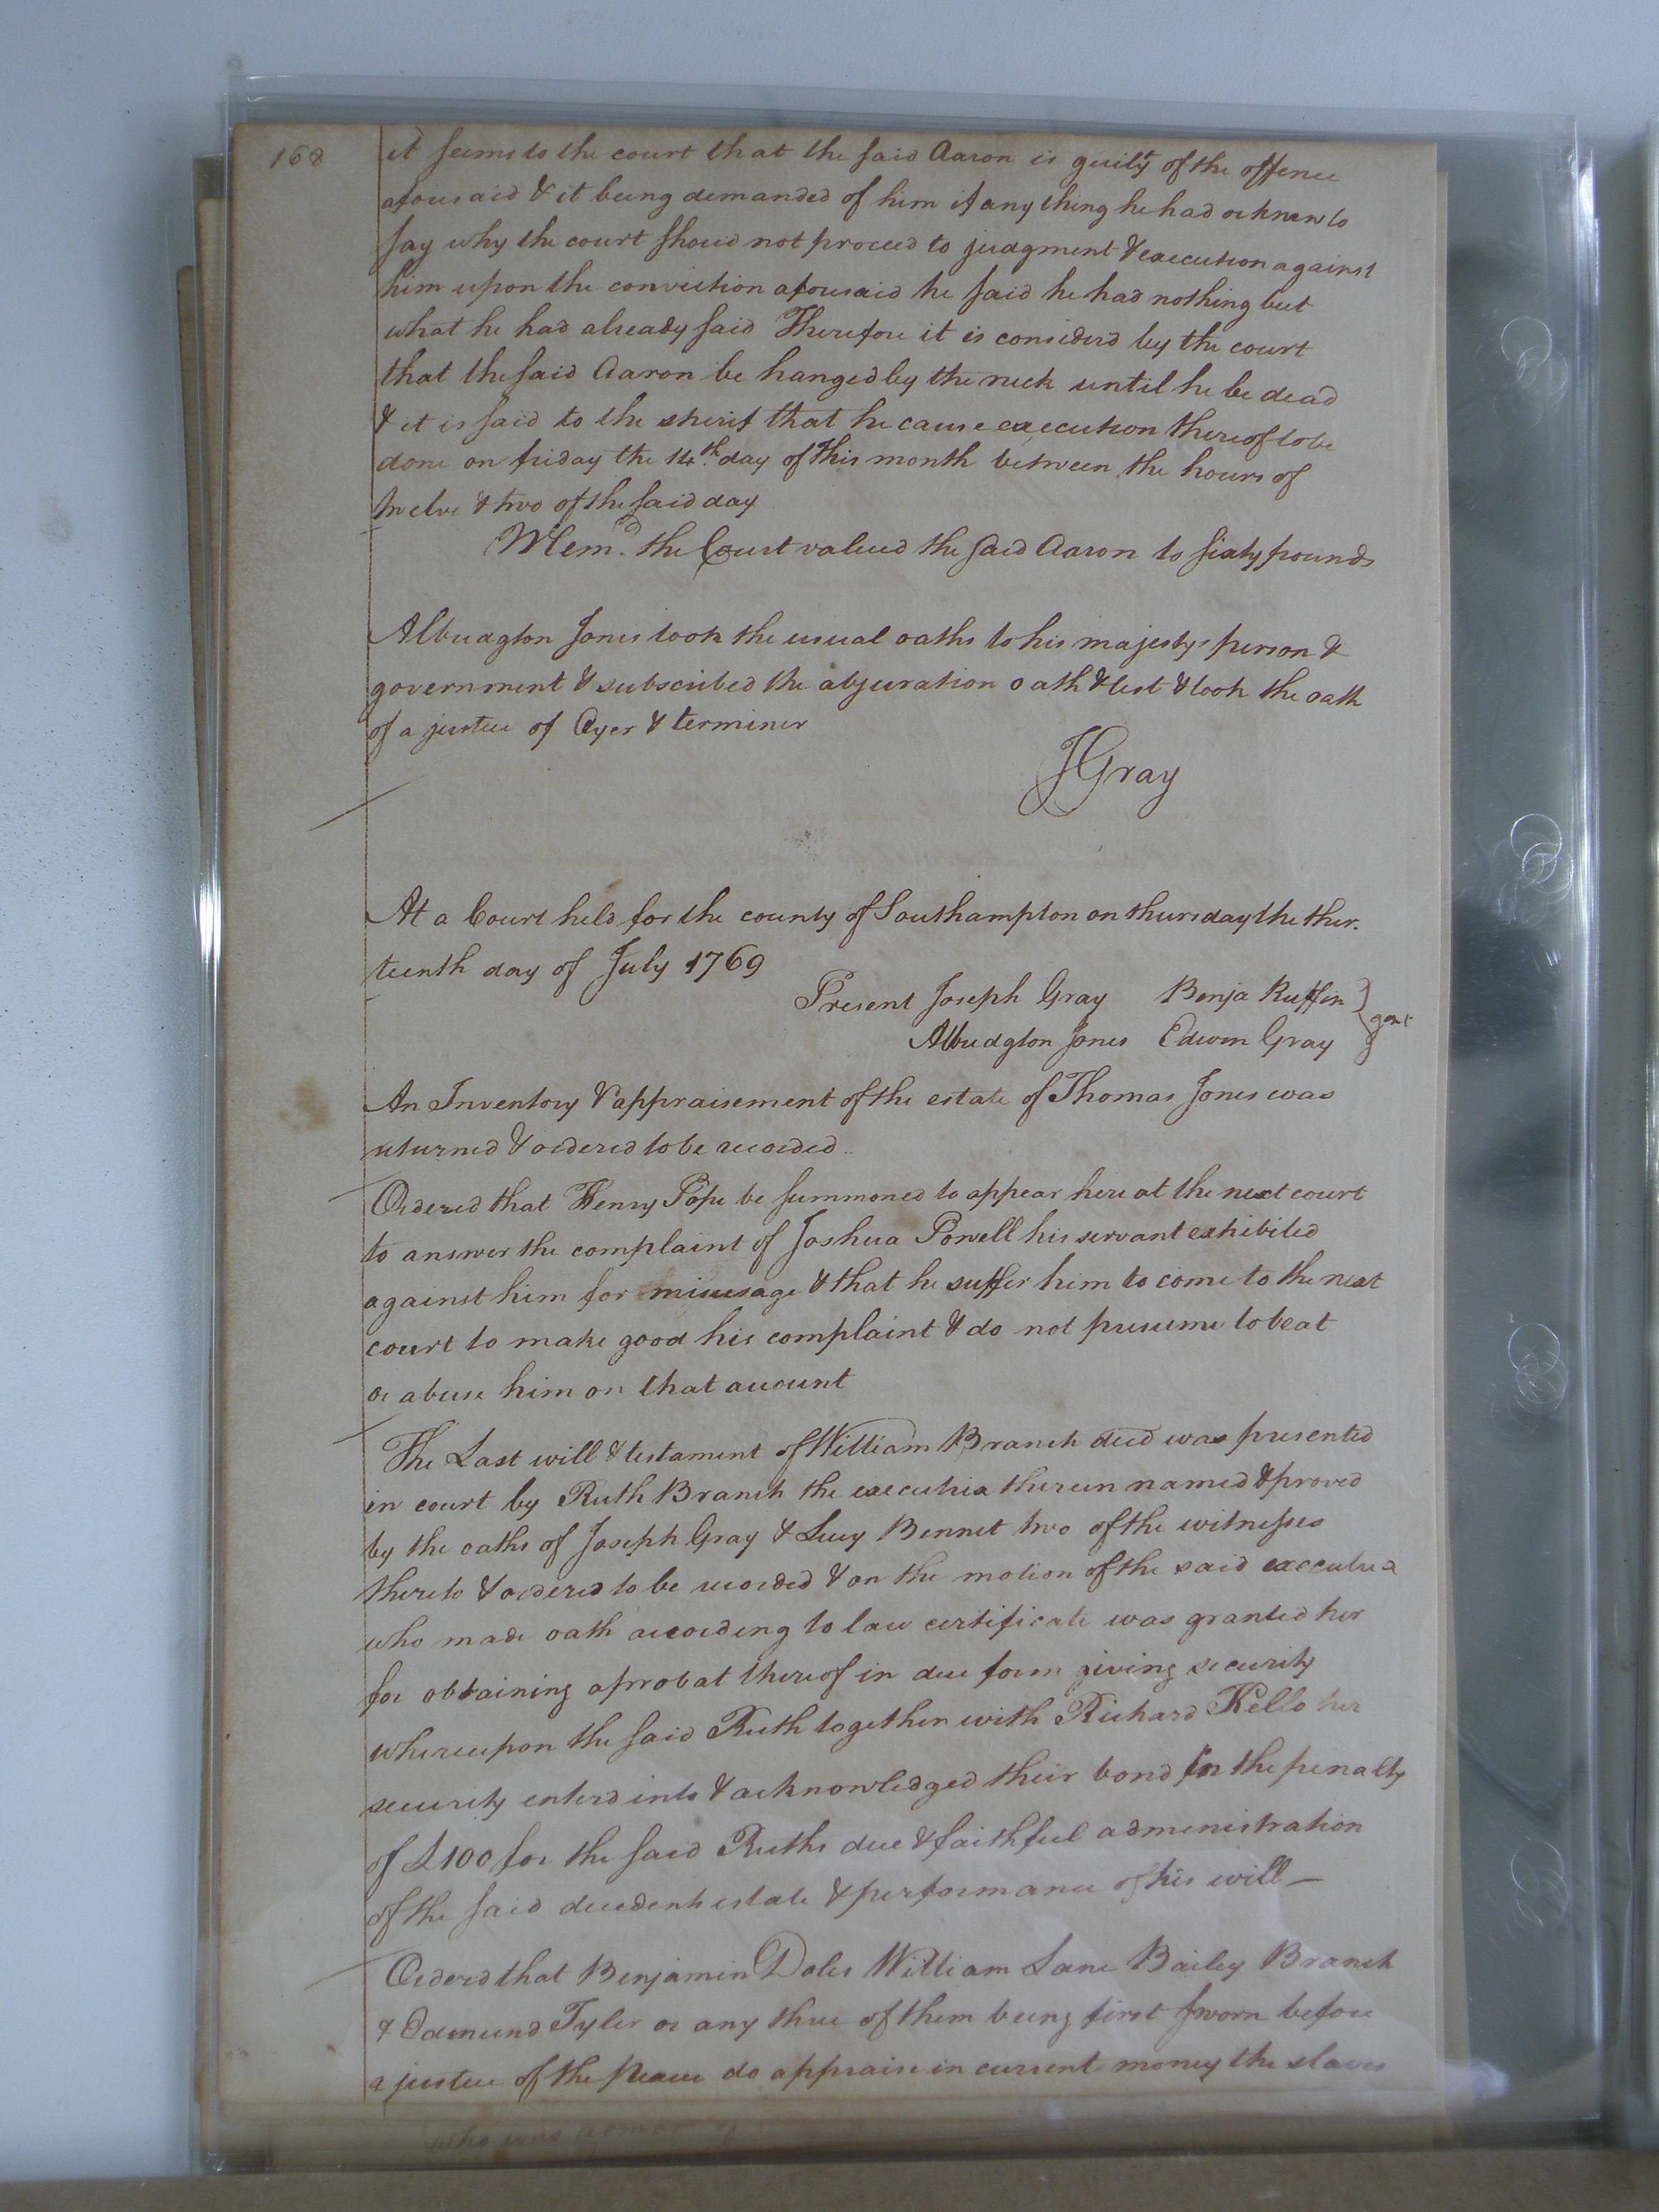 168
it seems to the court that the said Aaron is guilty of the offence
aforesaid & it being demanded of him if any thing he had or knew to
say why the court shoud not proceed to judgment & execution against
him upon the conviction aforesaid he said he had nothing but
what he had already said Therefore it is considerd by the court
that the said Aaron be hanged by the neck until he be dead
& it is said to the sherif that he cause execution thereof to be
done on friday the 14th. day of this month between the hours of
twelve & two of the said day
Memd. the Court valued the said Aaron to sixty pounds
Albridgton Jones took the usual oaths to his majestys person &
government & subscribed the abjuration oath & test & took the oath
of a justice of Oyer & terminer
JGray
At a Court held for the county of Southampton on thursday the thir.
teenth day of July 1769
Present Joseph Gray Benja Ruffin
Albridgton Jones Edwin Gray } gent
An Inventory & appraisement of the estate of Thomas Jones was
returned & ordered to be recorded..
Ordered that Henry Pope be summoned to appear here at the next court
to answer the complaint of Joshua Powell his servant exhibited
against him for misusage & that he suffer him to come to the next
court to make good his complaint & do not presume to beat
or abuse him on that account
The Last will & testament of William Branch decd was presented
in court by Ruth Branch the executrix therein named & proved
by the oaths of Joseph Gray & Lucy Bennet two of the witnesses
thereto & ordered to be recorded & on the motion of the said executrix
who made oath according to law certificate was granted her
for obtaining a probat thereof in due form giving security
whereupon the said Ruth together with Richard Kello her
security enterd into & acknowledged their bond in the penalty
of £100 for the said Ruths due & faithful administration
of the said decedents estate & performance of his will —
Orderd that Benjamin Doles William Lane Bailey Branch
& Edmund Tyler or any three of them being first sworn before
a justice of the peace do appraise in current money the slaves
who was